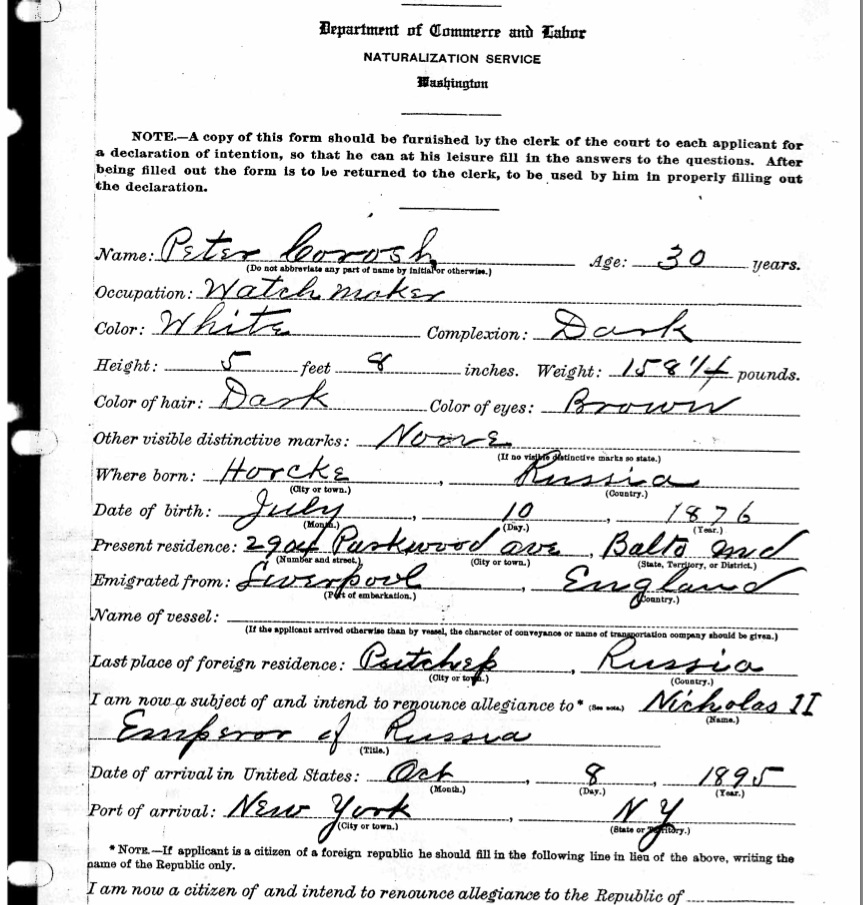 Department of Commerce and Labor
NATURALIZATION SERVICE
Washington
NOTE.—A copy of this form should be furnished by the clerk of the court to each applicant for
a declaration of intention, so that he can at his leisure fill in the answers to the questions. After
being filled out the form is to be returned to the clerk, to be used by him in properly filling out
the declaration.
Name: Peter Corosh Age: 30 years.
(Do not abbreviate any part of name by initial or otherwise.)
Occupation: Watchmaker
Color: White Complexion: Dark
Height: 5 feet 8 inches. Weight: 158 1/4 pounds.
Color of hair: Dark Color of eyes: Brown
Other visible distinctive marks: Noone
(If no visible distinctive marks so state.)
Where born: Horcke, Russia
(City or town.) (Country.)
Date of birth: July, 10, 1876
(Month.) (Day.) (Year.)
Present residence: 2904 Parkwood ave, Balto md
(Number and street.) (City or town.) (State, Territory, or District.)
Emigrated from: Liverpool, England
(Port of embarkation.) (Country.)
Name of vessel:
(If the applicant arrived otherwise than by vessel, the character of conveyance or name of transportation company should be given.)
Last place of foreign residence: , Russia
(City or town.) (Country.)
I am now a subject of and intend to renounce allegiance to* (See note.) Nicholas II
(Name.)
Emperor of Russia
(Title.)
Date of arrival in United States: Oct, 8, 1895
(Month.) (Day.) (Year.)
Port of arrival: New York, NY
(City or town.) (State or Territory.)
* NOTE.—If applicant is a citizen of a foreign republic he should fill in the following line in lieu of the above, writing the
name of the Republic only.
I am now a citizen of and intend to renounce allegiance to the Republic of